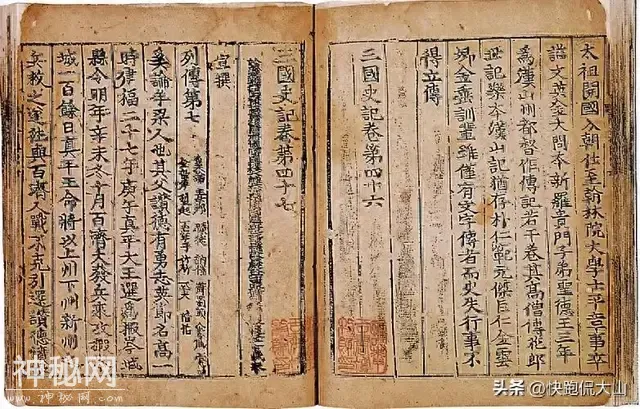 太祖開國入朝仕至翰林院大學士平章事卒
諡文英金大問本新羅貴門子弟聖德王三年
為漢山州都督作傳記若干卷其高僧傳花郎
世記樂本漢山記猶存朴仁範元傑巨仁金雲
卿金垂訓輩雖僅有文字傳者而史失行事不
得立傳
三國史記卷第四十六
三國史記卷第四十七
宣撰
列傳第七
奚論牟梁人也其父讚德有勇志英節名高一
時建福二十七年庚午真平大王選為椵岑城
縣令明年辛未冬十月百濟大發兵來攻椵岑
城一百餘日真平王命將以上州下州新州之
兵救之遂往與百濟人戰不克引還讚德憤恨
神秘网
www.神秘网.com
头条 @快跑侃大山